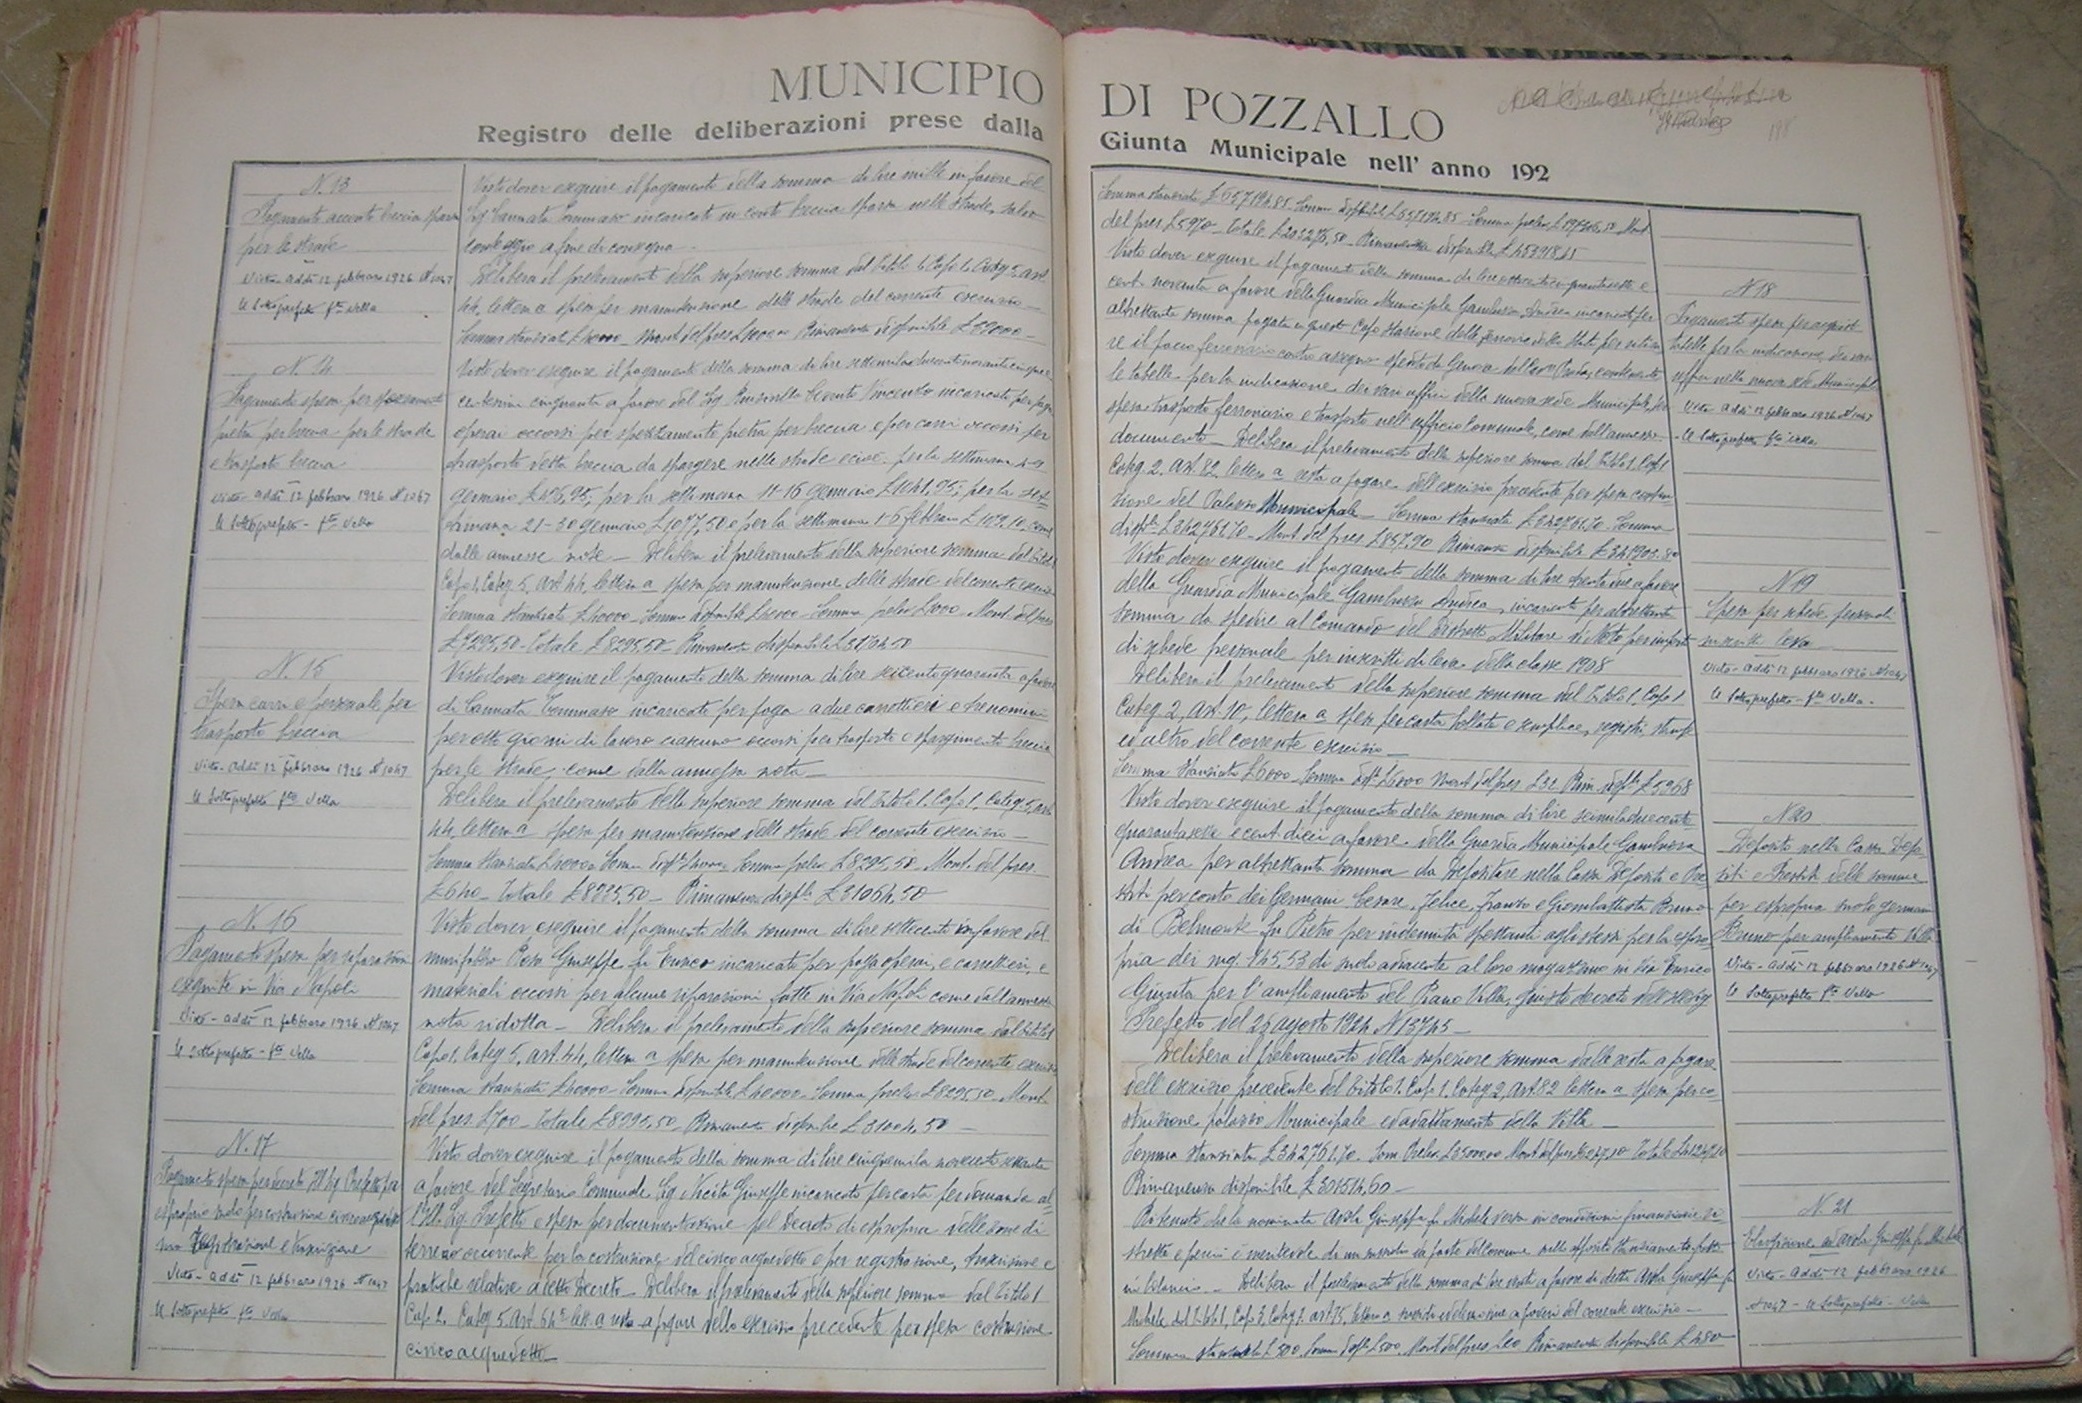 MUNICIPIO
Registro delle deliberazioni prese dalla
N. 13
Pagamento acconto breccia sparsa
per le strade
Visto - addì 12 febbraio 1926 N 1047
Il Sottoprefetto fto Vella
N. 14
Pagamento spesa per spezzamento
pietra per breccia per le strade
e trasporto breccia
Visto - addì 12 febbraio 1926 N 1047
Il Sottoprefetto - fto Vella
N. 15
Spesa carri e personale per
trasporto breccia
Visto - addì 12 febbraio 1926 N 1047
Il Sottoprefetto fto Vella
N. 16
Pagamento spesa per riparazioni
eseguite in Via Napoli
Visto - addì 12 febbraio 1926 N 1047
Il Sottoprefetto - fto Vella
N. 17
Pagamento spesa per decreto Ill Sig Prefetto per
esproprio suolo per costruzione civico acquedotto
registrazione e trascrizione
Visto - addì 12 febbraio 1926 N 1047
Il Sottoprefetto fto Vella
Visto dover eseguire il pagamento della somma di lire mille in favore del
Sig Cannata Tommaso incaricato in conto breccia sparsa nelle strade, salvo
conteggio a fine di consegna -
Delibera il prelevamento della superiore somma dal titolo 1. Capo 1. Categ 5. art
44, lettera a spesa per manutenzione delle strade del corrente esercizio -
Somma stanziata £ 40000 - Mont del pres £ 1000 - Rimanenza disponibile £ 39000 -
Visto dover eseguire il pagamento della somma di lire settemiladuecentonovantacinque e
centesimi cinquanta a favore del Sig Vincenzo incaricato per paga
operai occorsi per spezzamento pietra per breccia e per carri occorsi per
trasporto detta breccia da spargere nelle strade cioè per la settimana
gennaio per la settimana 11-16 gennaio per la set-
timana 21-30 gennaio £ 1077,50 e per la settimana 1-6 febbraio come
dalle annesse note - Delibera il prelevamento della superiore somma dal titolo
Capo 1, Categ 5, art 44, lettera a spesa per manutenzione delle strade del corrente esercizio
Somma stanziata £ 40000 - Somma disponibile £ 40000 - Somma prelev £ 1000 - Mont. del pres
£ 7295,50 - Totale £ 8295,50 - Rimanenza disponibile £ 31704,50
Visto dover eseguire il pagamento della somma di lire seicentoquaranta a favore
di Cannata Tommaso incaricato per paga a due carrettieri e tre uomini
per otto giorni di lavoro ciascuno occorsi per trasporto e spargimento breccia
per le strade, come dalla annessa nota -
Delibera il prelevamento della superiore somma dal titolo 1. Capo 1, Categ 5, art
44, lettera a spesa per manutenzione delle strade del corrente esercizio -
Somma stanziata £ 40000 Somma prelev £ 8295,50 - Mont. del pres.
£ 640 - Totale £ 8935,50 - Rimanenza dispbe £ 31064,50
Visto dover eseguire il pagamento della somma di lire settecento in favore del
Giuseppe fu incaricato per paga operai, e carrettieri, e
materiali occorsi per alcune riparazioni fatte in Via Napoli come dall'annessa
nota ridotta - Delibera il prelevamento della superiore somma dal titolo 1
Capo 1. Categ 5. art. 44, lettera a spesa per manutenzione delle strade del corrente esercizio
Somma stanziata £ 40000 - Somma disponibile £ 40000 - Somma prelev £ 8295,50 - Mont.
del pres. £ 700 - Totale £ 8995,50 - Rimanenza disponibe £ 31004,50 -
Visto dover eseguire il pagamento della somma di lire cinquemila novecento settanta
a favore del Segretario Comunale Sig Nicita Giuseppe incaricato per carta per domanda al-
l'Ill. Sig. Prefetto e spesa per documentazione pel Decreto di esproprio delle zone di
terreno occorrente per la costruzione del civico acquedotto e per registrazione, trascrizione e
pratiche relative a detto Decreto - Delibera il prelevamento della superiore somma dal titolo 1
Cap. 2. Categ 5. Art 64 lett. a resto a pagare dello esercizio precedente per spesa costruzione
civico acquedotto -
DI POZZALLO
Giunta Municipale nell' anno 192
Somma stanziata £ 657194,85
del pres £ 5970 - Totale £ 203276,50 - Rimanenza dispbe £ 453918,35
Visto dover eseguire il pagamento della somma di lire ottocentocinquantasette e
cent. novanta a favore della Guardia Municipale Gambuzza Andrea incaricato per
altrettanta somma pagata a questo Capo Stazione delle ferrovie dello Stato per ritira-
re il pacco ferroviario contro assegno spedito da Genova dalla contenente
le tabelle per la indicazione dei vari uffici della nuova sede Municipale,
spesa trasporto ferroviario e trasporto nell'ufficio Comunale, come dall'annesso
documento - Delibera il prelevamento della superiore somma dal titolo 1. Cap 1
Categ. 2. art. 82. lettera a resto a pagare dell'esercizio precedente per spesa costru-
zione del Palazzo Municipale - Somma stanziata £ 342761,70 - Somma
dispbe £ 342761,70 - Mont del pres £ 857,90 Rimanenza disponibile £ 341903,80
Visto dover eseguire il pagamento della somma di lire trentadue a favore
della Guardia Municipale Gambuzza Andrea, incaricato per altrettanta
somma da spedire al Comando del Distretto Militare di Noto per importo
di schede personale per inscritti di leva della classe 1908
Delibera il prelevamento della superiore somma dal titolo 1, Capo 1
Categ 2, Art. 10, lettera a spesa per carta bollata e semplice, registri, stampe
ed altro del corrente esercizio -
Somma stanziata £ 6000 - Somma dispbe £ 6000 Mont del pres. £ 32 Rim. dispbe £ 5968
Visto dover eseguire il pagamento della somma di lire seimiladuecento-
quarantasette e cent. dieci a favore della Guardia Municipale Gambuzza
Andrea per altrettanta somma da depositare nella Cassa Depositi e Pre-
stiti per conto dei Germani Cesare, Felice, Franco e Giombattista Bruno
di Belmonte fu Pietro per indennità spettante agli stessi per la espro-
pria dei mq. 165,53 di suolo adiacente al loro magazzeno in Via Enrico
Giunta per l'ampliamento del Piano Villa, giusto decreto dell'Ill Sig
Prefetto del 25 agosto 1924 N 13745 -
Delibera il prelevamento della superiore somma dalla resta a pagare
dell'esercizio precedente del titolo 1. Cap. 1. Categ 2, Art 82 lettera a spesa per co-
struzione palazzo Municipale ed adattamento della Villa -
Somma stanziata £ 342761,70 - Som. Prelev. £ 35000,00 Mont del pres 6247,10 Totale £ 41247,10
Rimanenza disponibile £ 301514,60 -
Ritenuto che la nominata Giuseppa fu Michele versa in condizioni finanziarie ri-
strette e perciò è meritevole di un sussidio da parte del Comune nello apposito stanziamento fatto
in bilancio - Delibera il prelevamento della somma di lire venti a favore di detta Giuseppa fu
Michele dal Titolo 1, Cap. 3, Categ 1. art 75, lettera a sussidi ed elemosine a poveri del corrente esercizio -
Somma stanziata £ 500 Somma dispbe £ 500. Mont del pres £ 20 Rimanenza disponibile £ 480
N 18
Pagamento spesa per acquisto
tabelle per la indicazione dei vari
uffici nella nuova sede Municipale
Visto - addì 12 febbraio 1926 N 1047
Il Sottoprefetto fto Vella
N 19
Spesa per schede personali
inscritti leva
Visto - addì 12 febbraio 1926 N 1047
Il Sottoprefetto - fto Vella -
N 20
Deposito nella Cassa Depo-
siti e Prestiti delle somme
per espropria suolo germani
Bruno per ampliamento Villa
Visto - addì 12 febbraio 1926 N 1047
Il Sottoprefetto fto Vella
N. 21
Elargizione ad Giuseppa fu Michele
Visto - addì 12 febbraio 1926
N 1047 - Il Sottoprefetto - Vella